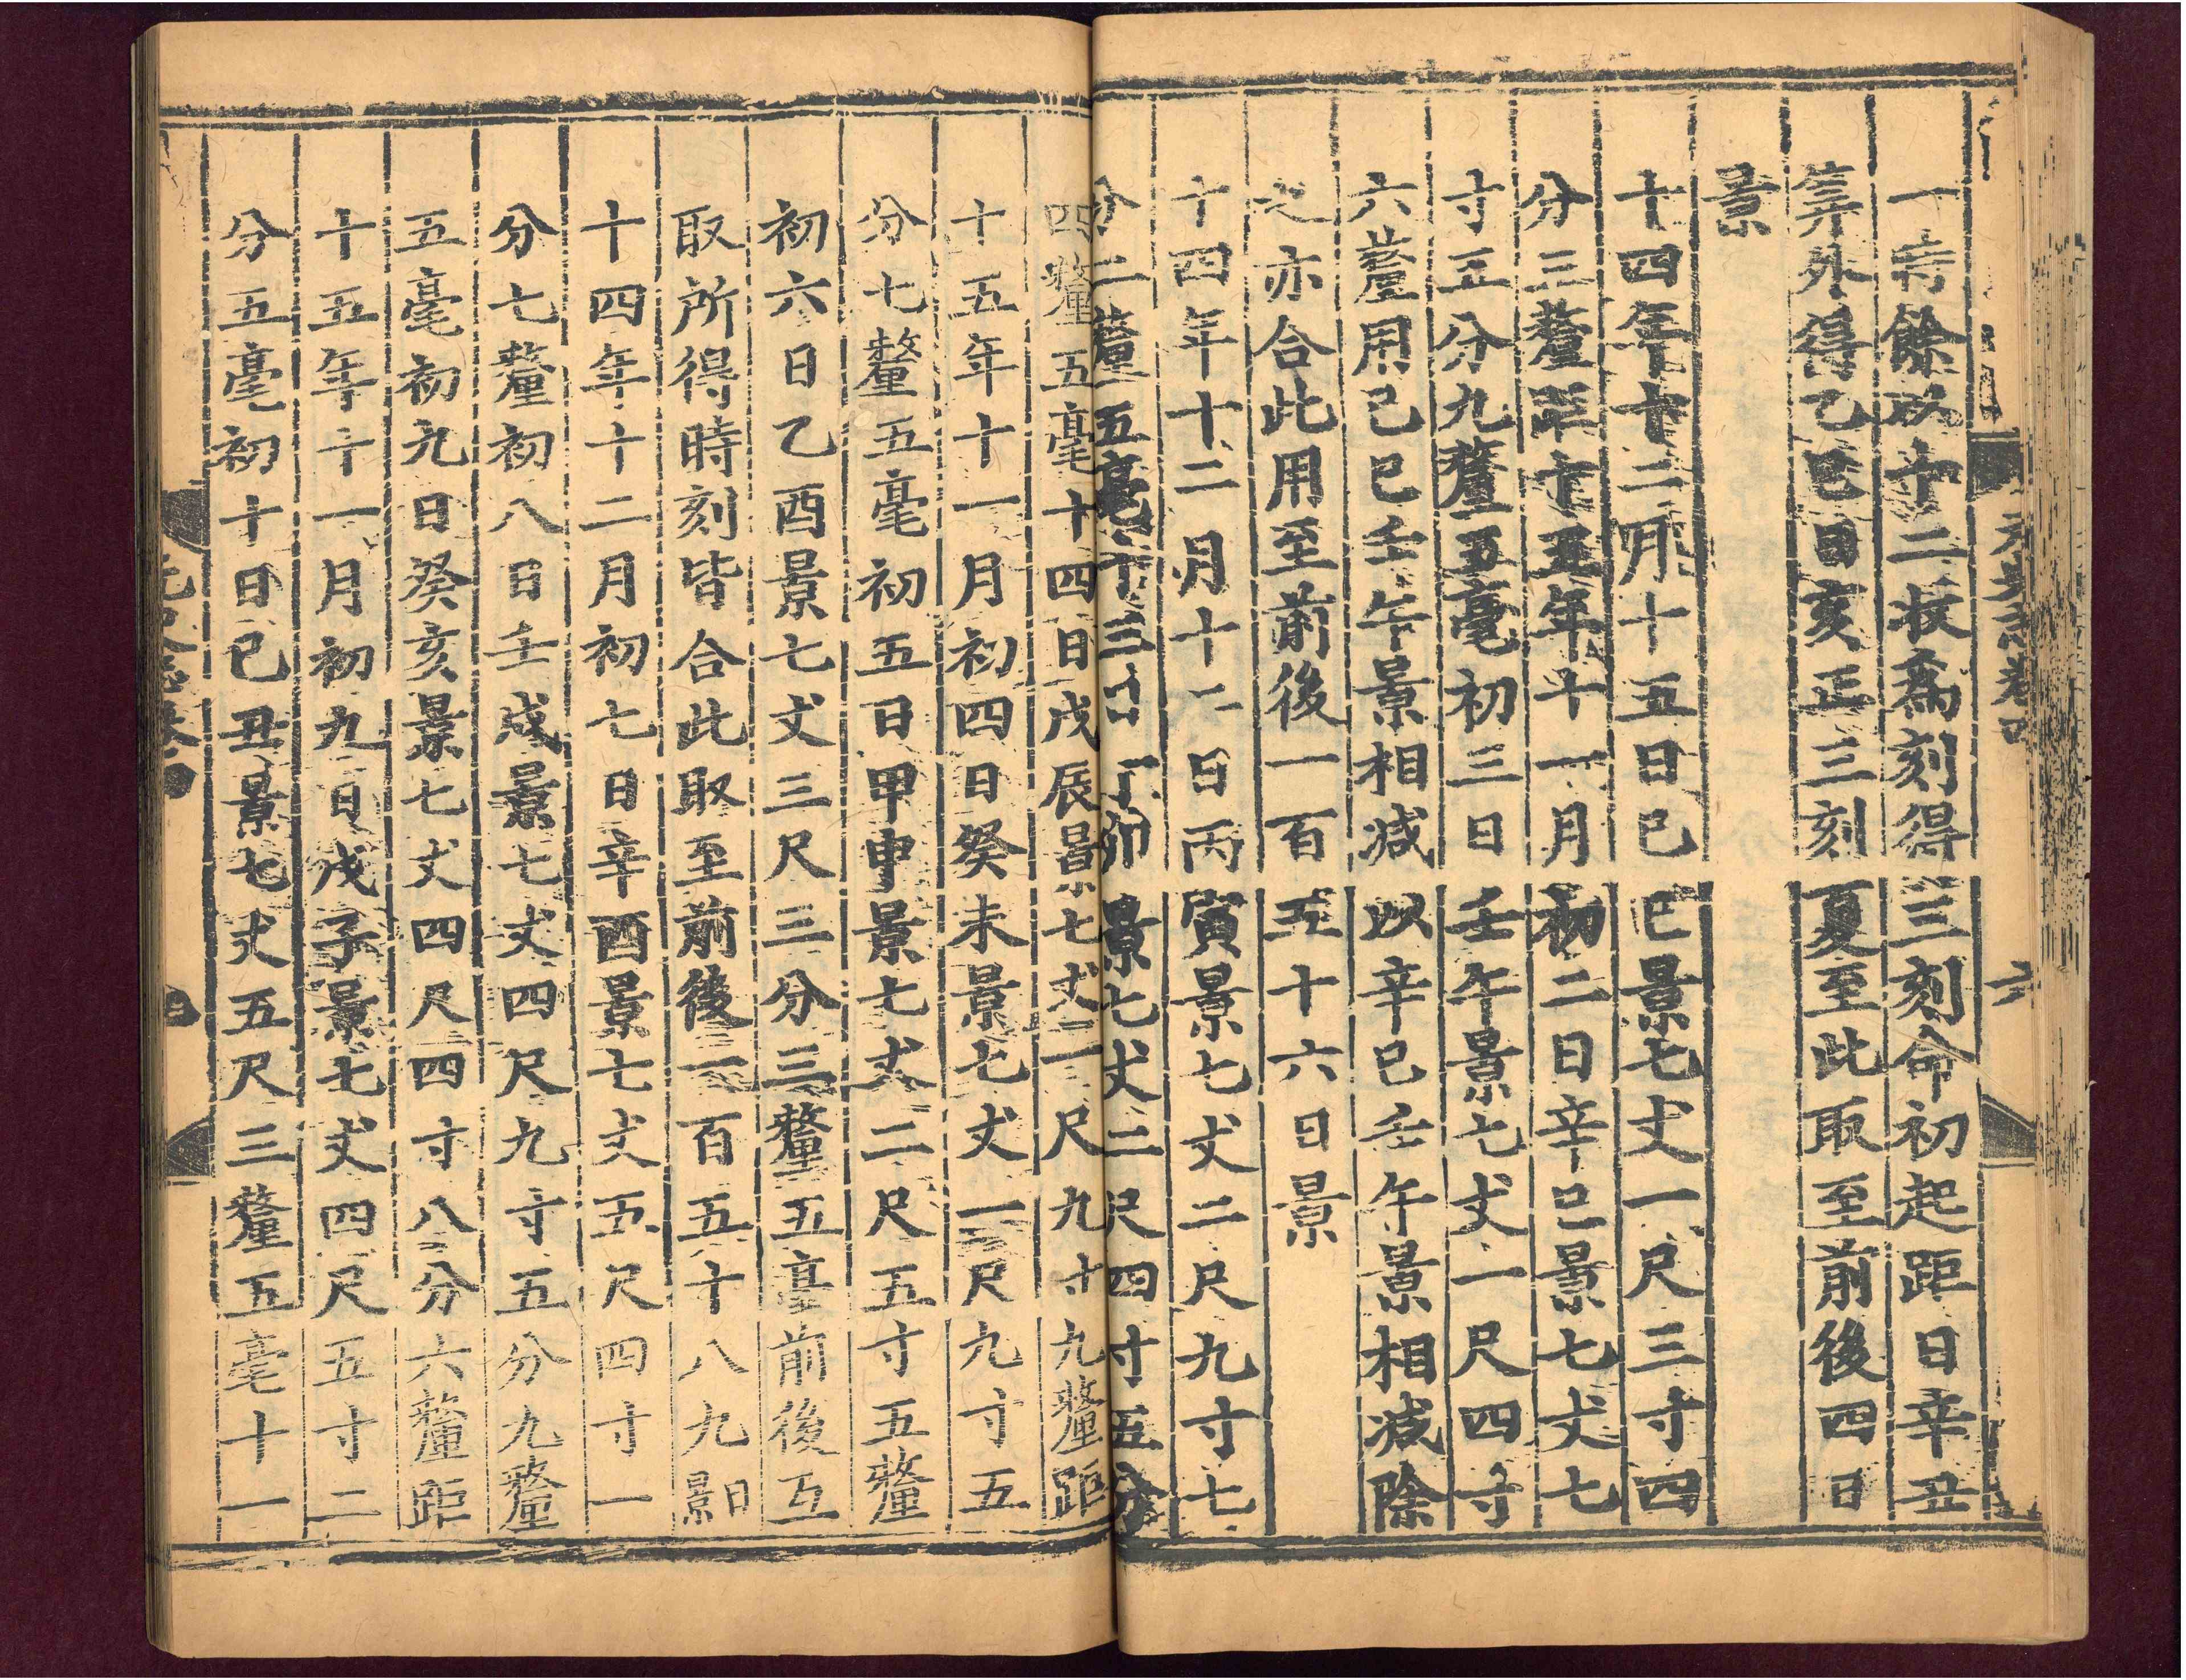 一時餘以十二收爲刻得三刻命初起距日辛丑
筭外得乙巳日亥正三刻夏至此取至前後四日
景
十四年十二月十五日己巳景七丈一尺三寸四
分三釐距十五年十一月初二日辛巳景七丈七
寸五分九釐五毫初三日壬午景七丈一尺四寸
六釐用己巳壬午景相减以辛巳壬午景相减除
之亦合此用至前後一百五十六日景
十四年十二月十二日丙寅景七丈二尺九寸七
分二釐五毫十三日丁卯景七丈二尺四寸五分
四釐五毫十四日戊辰景七丈一尺九寸九釐距
十五年十一月初四日癸未景七丈一尺九寸五
分七釐五毫初五日甲申景七丈二尺五寸五釐
初六日乙酉景七丈三尺三分三釐五毫前後互
取所得時刻皆合此取至前後一百五十八九日景
十四年十二月初七日辛酉景七丈五尺四寸一
分七釐初八日壬戌景七丈四尺九寸五分九釐
五毫初九日癸亥景七丈四尺四寸八分六釐距
十五年十一月初九日戊子景七丈四尺五寸二
分五毫初十日己丑景七丈五尺三釐五毫十一